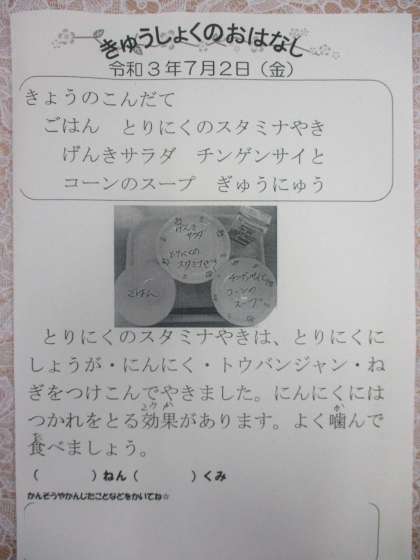 きゅうしょくのおはなし
令和3年7月2日(金)
きょうのこんだて
ごはん とりにくのスタミナやき
げんきサラダ チンゲンサイと
コーンのスープ ぎゅうにゅう
げんき
サラダ
とりにくの
スタミナやき
ごはん
チンゲンサイと
コーンの
スープ
とりにくのスタミナやきは、とりにくに
しょうが・にんにく・トウバンジャン・ね
ぎをつけこんでやきました。にんにくには
つかれをとる効果があります。よく噛んで
食べましょう。
( )ねん( )くみ
かんそうやかんじたことなどをかいてね☆